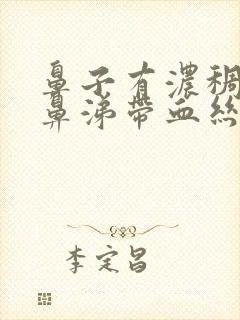 鼻子有濃稠
鼻涕帶血絲
李定昌